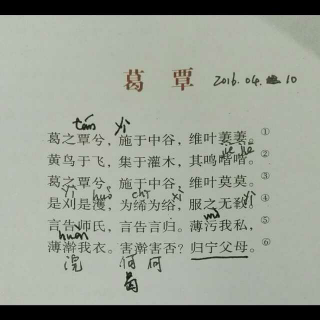 葛 覃 2016.04.10
tán yì
葛之覃兮,施于中谷,维叶萋萋。①
jiē jiē
黄鸟于飞,集于灌木,其鸣喈喈。②
葛之覃兮,施于中谷,维叶莫莫。③
yì huò chī xì yì
是刈是濩,为絺为绤,服之无斁。④
言告师氏,言告言归。薄污我私,⑤
huàn
薄澣我衣。害澣害否?归宁父母。⑥
浣 何 何